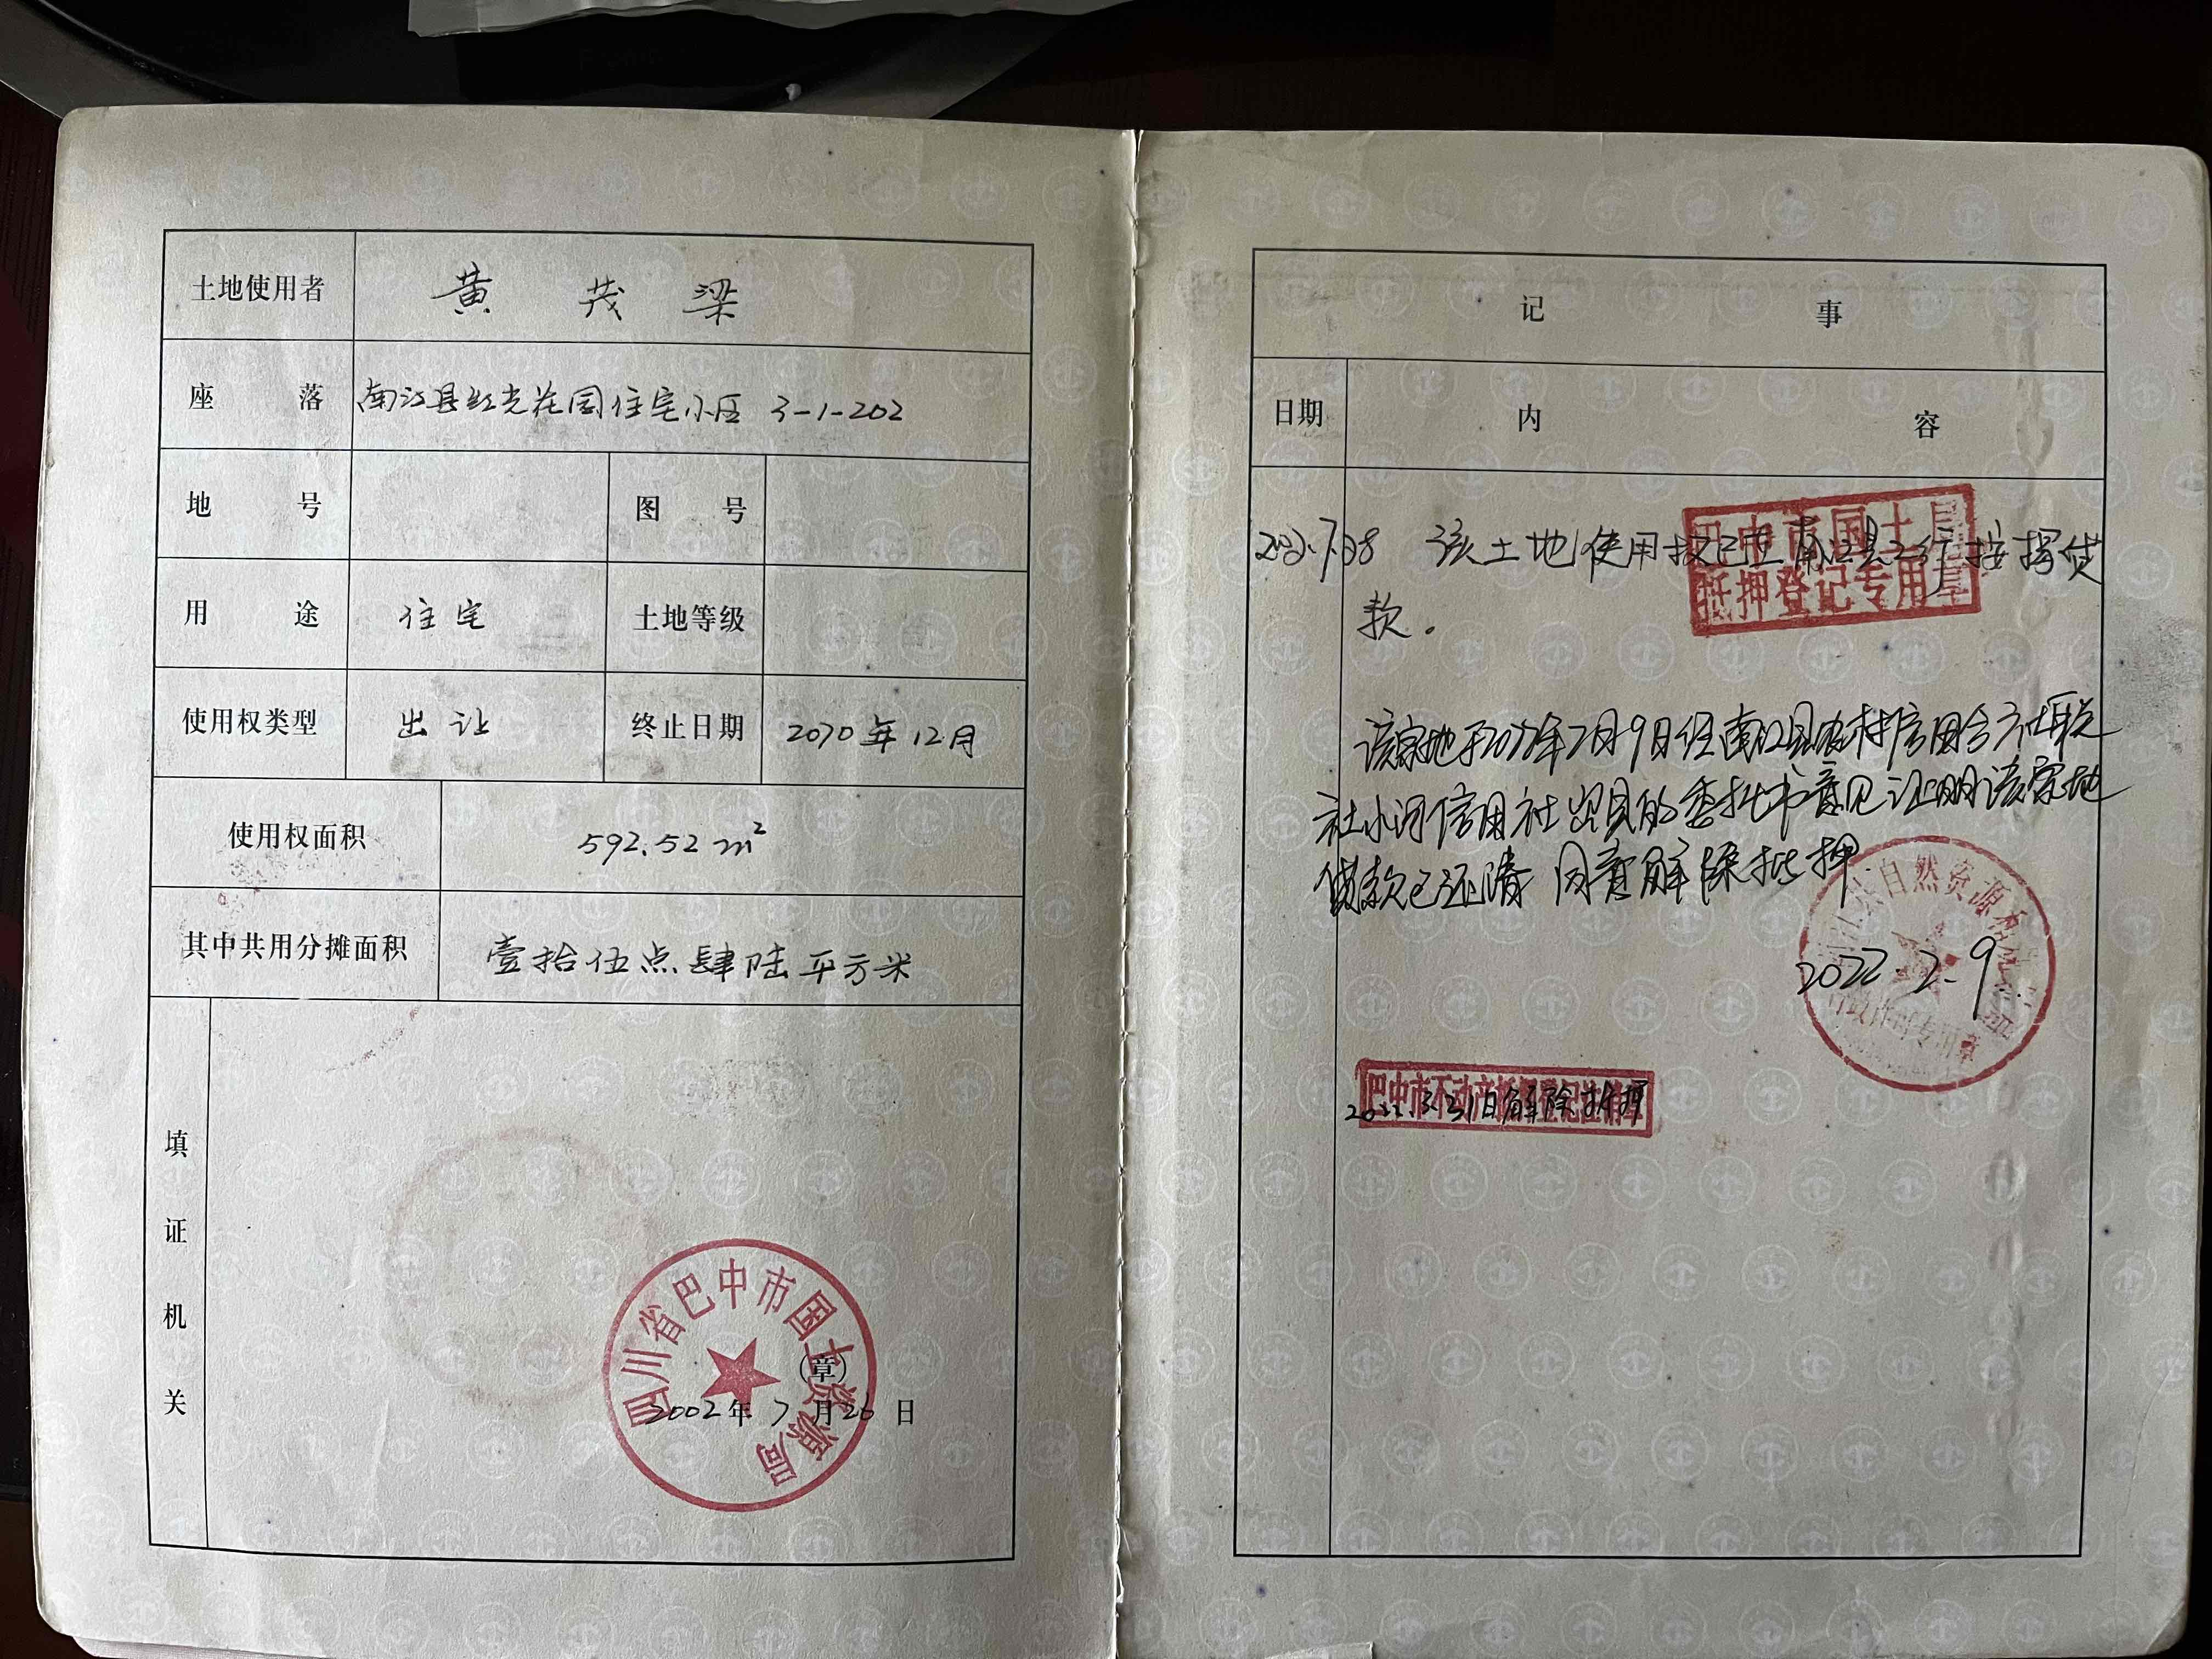 土地使用者 黄茂梁
座落 南江县红光花园住宅小区 3-1-202
地号 图号
用途 住宅 土地等级
使用权类型 出让 终止日期 2070年12月
使用权面积 592.52 m²
其中共用分摊面积 壹拾伍点肆陆平方米
填证机关
四川省巴中市国土资源局
(章)
2002年7月20日
记事
日期 内容
该土地使用权已在南江县工行按揭贷
款.
巴中市国土局
抵押登记专用章
该宗地于2022年2月9日经南江县农村信用合作社联
社小河信用社出具的委托书意见证明该宗地
贷款已还清 同意解除抵押.
自然资源和规划局
行政许可专用章
2022.2.9.
巴中市不动产抵押登记注销章
2022.3.31日解除抵押